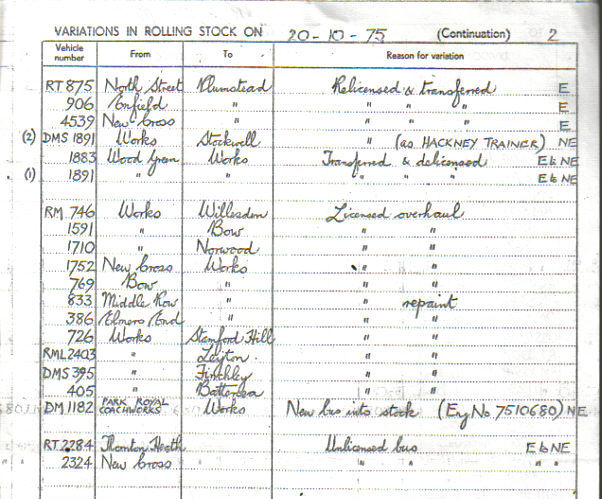 VARIATIONS IN ROLLING STOCK ON 20-10-75 (Continuation) 2
Vehicle number From To Reason for variation
RT 875 North Street Plumstead Relicensed & transferred E
906 Enfield " " " " E
4539 New Cross " " " " E
(2) DMS 1891 Works Stockwell " (as HACKNEY TRAINER) NE
1883 Wood Green Works Transferred & delicensed E to NE
(1) 1891 " " " " " E to NE
RM 746 Works Willesden Licensed overhaul
1591 " Bow " "
1710 " Norwood " "
1752 New Cross Works " "
769 Bow " " "
833 Middle Row " " repaint
386 Elmers End " " "
726 Works Stamford Hill " "
RML 2403 " Leyton " "
DMS 395 " Finchley " "
405 " Battersea " "
DM 1182 PARK ROYAL COACHWORKS Works New bus into stock (Eng No 7510680) NE
RT 2284 Thornton Heath Unlicensed bus E to NE
2324 New Cross " " " "